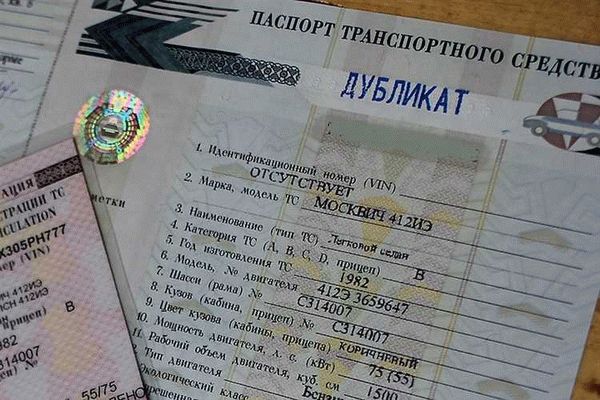 ПАСПОРТ ТРАНСПОРТНОГО СРЕДСТВ
ДУБЛИКАТ
1. Идентификационный номер (VIN)
ОТСУТСТВУЕТ
2. Марка, модель ТС МОСКВИЧ 412ИЭ
3. Наименование (тип ТС) Легковой седан
4. Категория ТС (A, B, C, D, прицеп) В
5. Год изготовления ТС 1982
6. Модель, № двигателя 412Э 3659647
7. Шасси (рама) № С314007
8. Кузов (кабина, прицеп) № С314007
9. Цвет кузова (кабины, прицепа) КОРИЧНЕВЫЙ
10. Мощность двигателя, л. с. (кВт) 75 (55)
11. Рабочий объем двигателя, куб. см 1500
Тип двигателя Бензи
Экологический класс
метки
АЦИЯ
СТРАЦИИ ТС
CULATION
Х305РН777
мер (VIN)
ИЧ 412ИЭ
ICH 412ИЭ
прицеп) В
314007
прицеп)
С314007
55/75